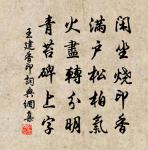 閑坐燒印香
滿戶松柏氣
火盡轉分明
青苔碑上字
王建香印詞典網集